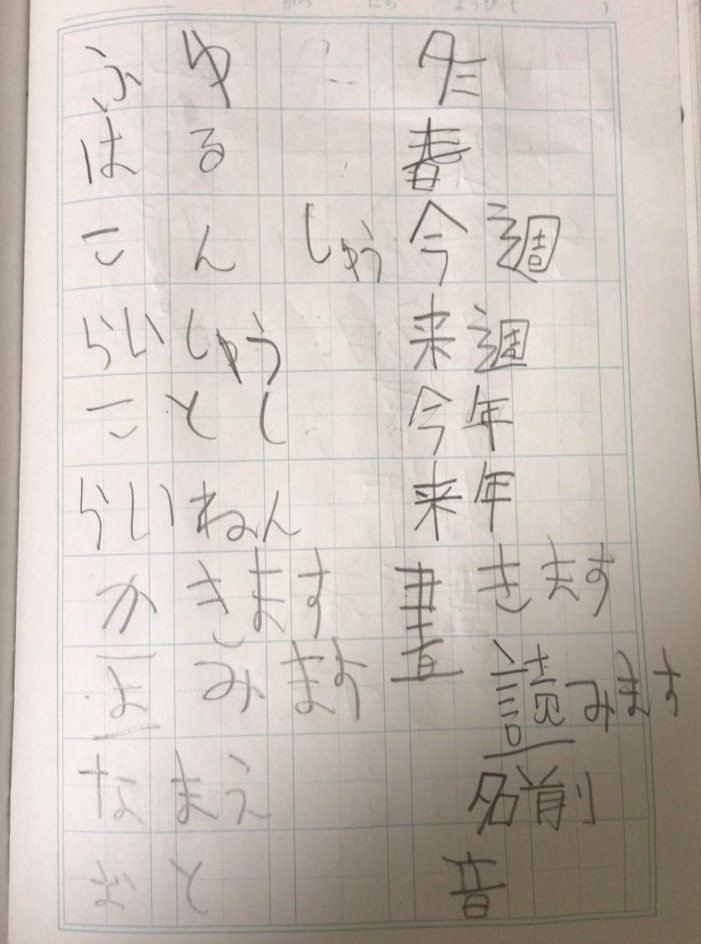 がつ にち ようび( )
ふゆ 冬
はる 春
こんしゅう 今週
らいしゅう 来週
ことし 今年
らいねん 来年
かきます 書きます
よみます 読みます
なまえ 名前
おと 音